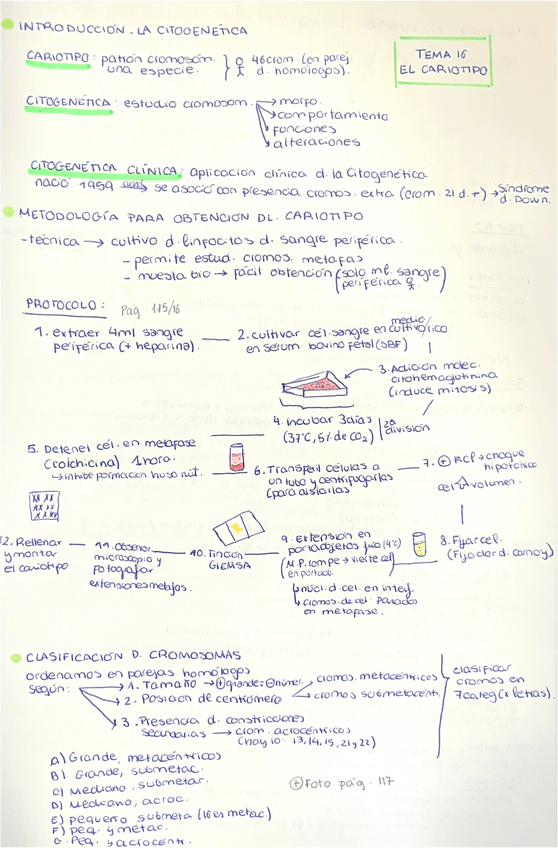 INTRODUCCIÓN. LA CITOGENÉTICA
TEMA 16
EL CARIOTIPO
CARIOTIPO: patrón cromosóm. 46 crom. (en parej
una especie. d. homólogos).
CITOGENÉTICA: estudio cromosom. → morfo.
→ comportamiento
→ funciones
→ alteraciones
CITOGENÉTICA CLÍNICA: aplicación clínica d. la Citogenética
nació 1959 → se asoció con presencia cromos. extra (crom. 21 d.+) → Síndrome
d. Down.
METODOLOGÍA PARA OBTENCIÓN DL. CARIOTIPO
- técnica → cultivo d. linfocitos d. sangre periférica.
- permite estud. cromos. metafas
- muestra bio → fácil obtención (solo ml. sangre
periférica
PROTOCOLO: Pág. 115/16
1. extraer 4ml sangre
periférica (+ heparina).
2. cultivar cél. sangre en medio/
en sérum bovino fetal (SBF)
3. Adición molec.
citohemaglutinina
(induce mitosis)
4. incubar 3 días
(37°C, 5% de CO2)
2a
división
5. Detener cél. en metafase
(colchicina) 1 hora.
→ inhibe formación huso mit.
6. Transferir células a
un tubo y centrifugarlas
(para aislarlas
7. + KCl → choque
hipotónico
cel ↑ volumen.
8. Fijar cel.
(Fijador d. carnoy)
9. extensión en
portaobjetos frío (4°C)
(M.P. rompe → vierte cél
en portaob.
→ núcl. d. cel. en interf.
→ cromos. de cel. paradas
en metafase.
10. Tinción
GIEMSA
11. observar
microscopio y
fotografiar
extensiones metafas.
12. Rellenar
y montar
el cariotipo
CLASIFICACIÓN D. CROMOSOMAS
ordenamos en parejas homólogos
según:
1. Tamaño → + grande = - númer.
2. Posición de centrómero
cromos. metacéntricos
cromos submetacent.
3. Presencia d. constricciones
secundarias → crom. acrocéntricos
(hay 10: 13, 14, 15, 21 y 22)
clasificar
cromos en
7 categ (x letras).
a) Grande, metacéntricos
B) Grande, submetac.
C) Mediano, submetac.
D) Mediano, acroc.
E) pequeño submeta (16 es metac.)
F) peq. y metac.
G. Peq. y acrocéntr.
+ Foto pág. 117